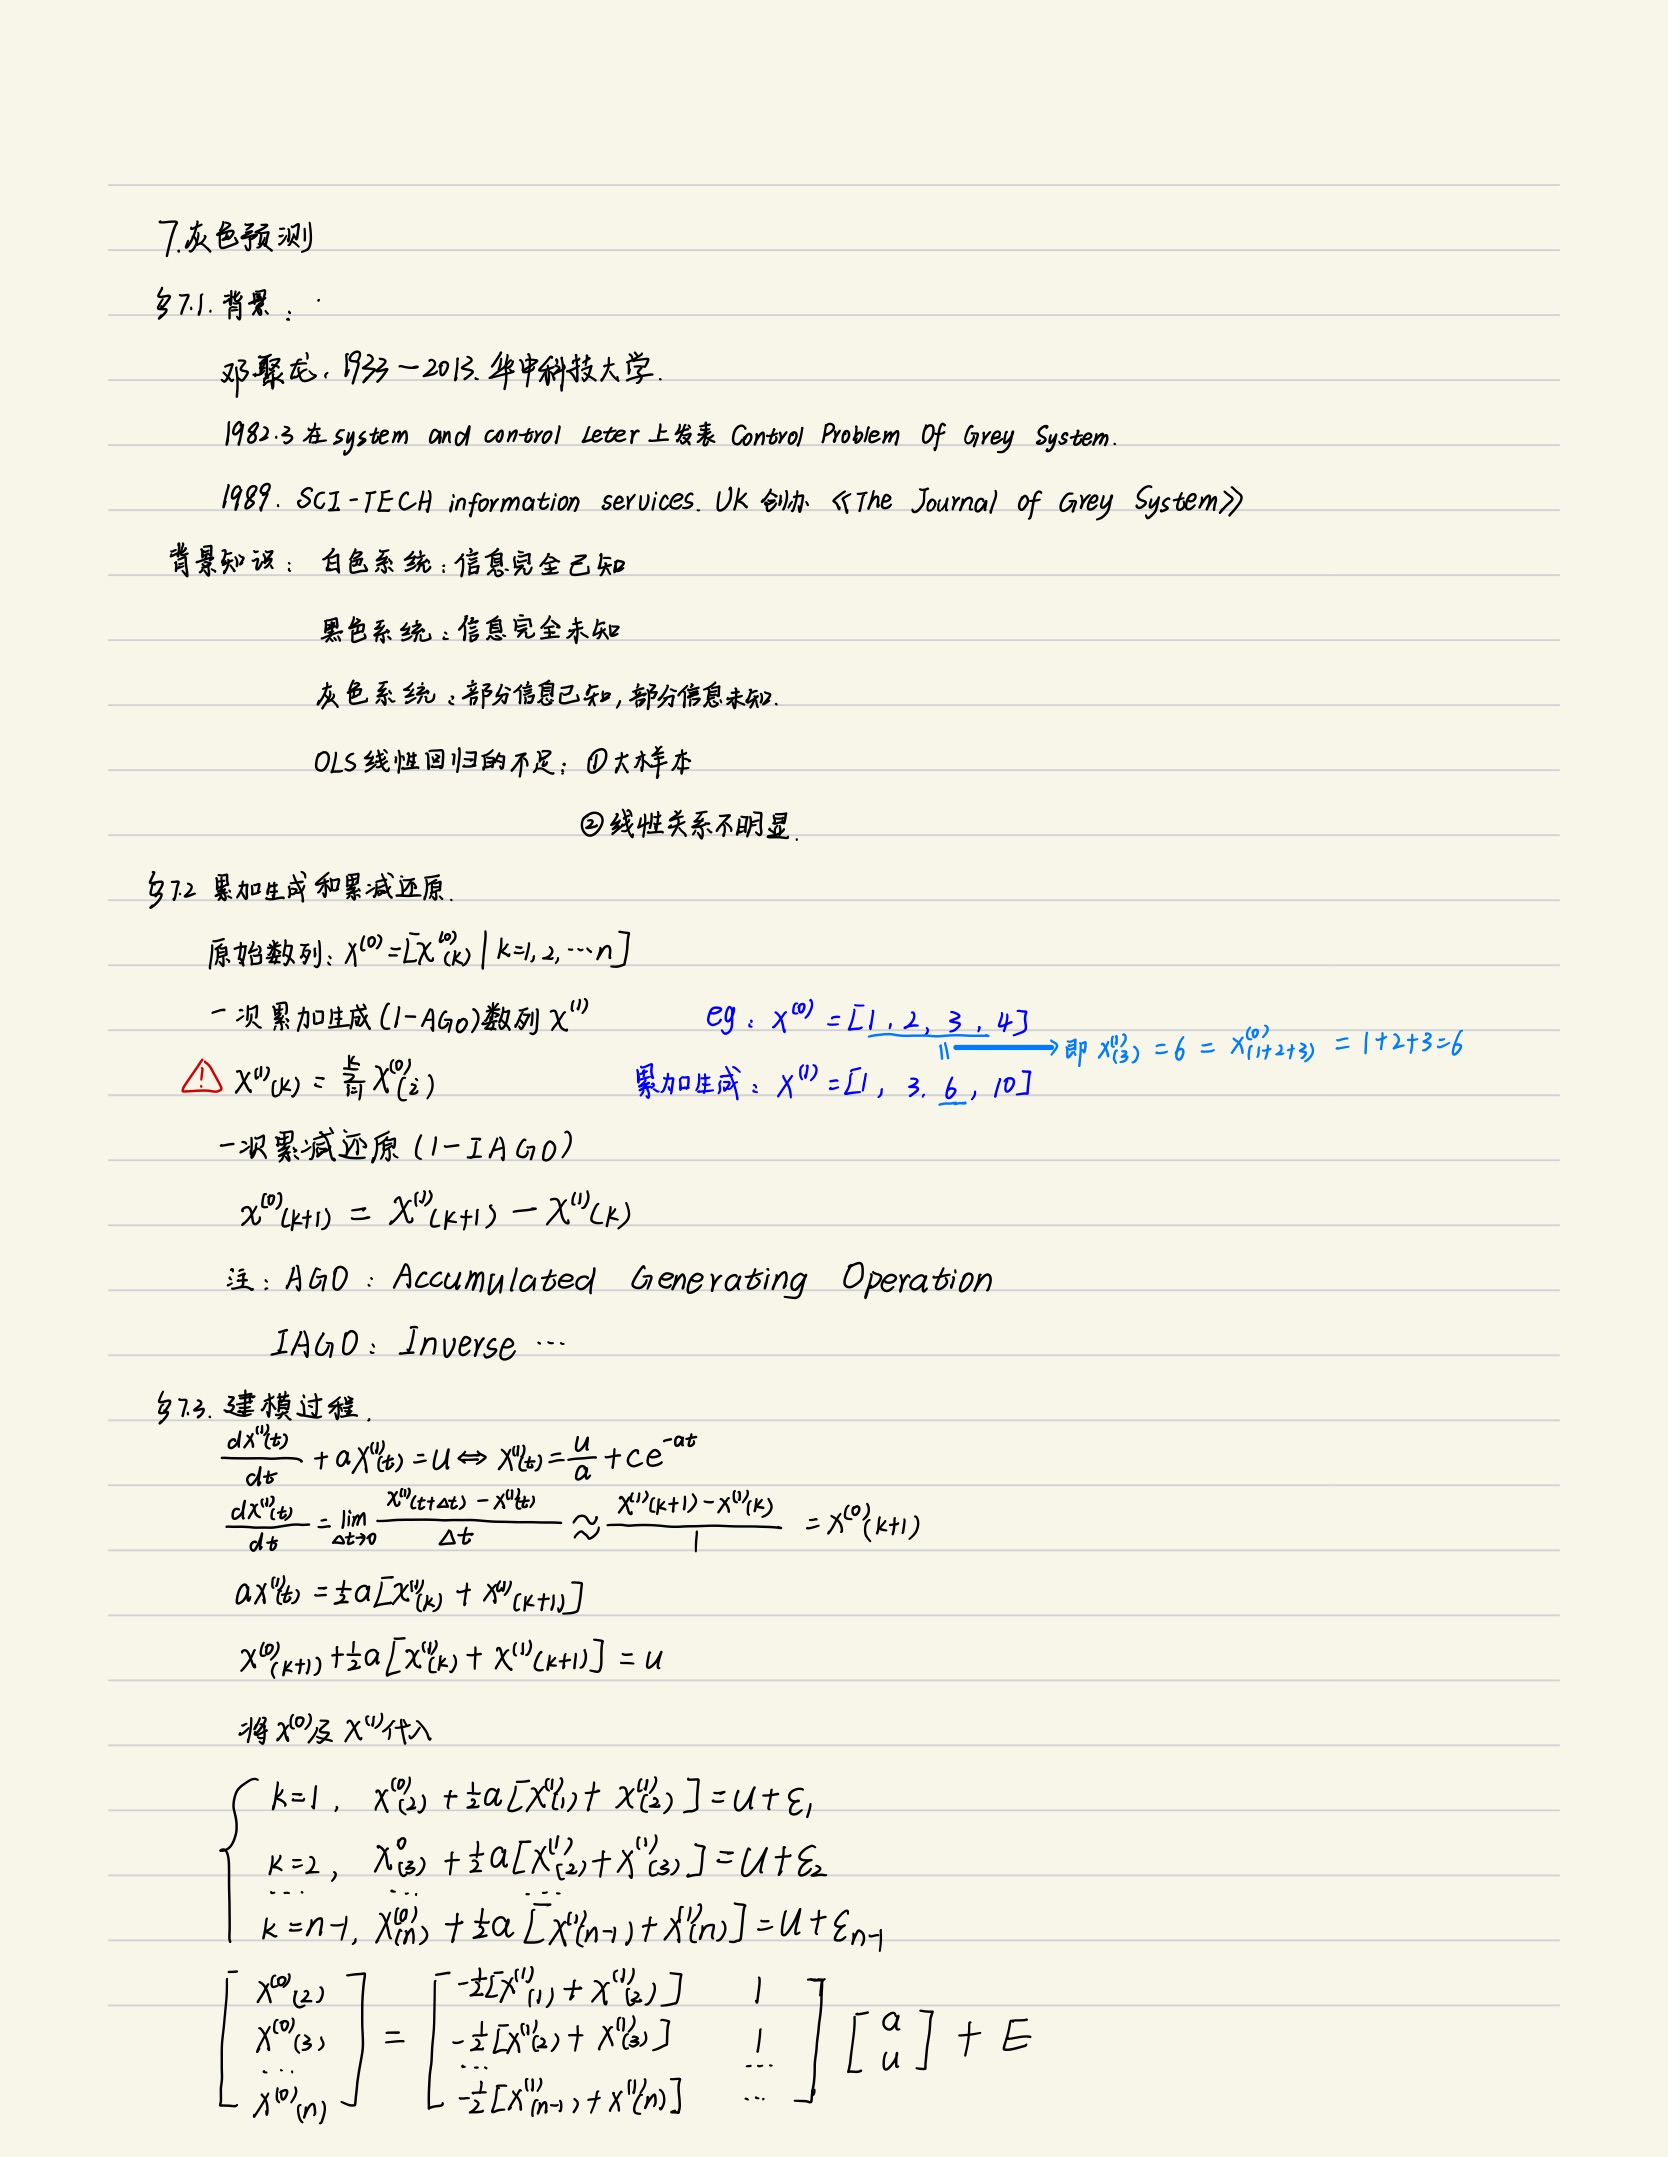 7.灰色预测
§7.1. 背景：
邓聚龙. 1933－2013. 华中科技大学.
1982.3 在 system and control Leter 上发表 Control Problem Of Grey System.
1989. SCI-TECH information services. UK 创办《The Journal of Grey System》
背景知识： 白色系统：信息完全已知
黑色系统：信息完全未知
灰色系统：部分信息已知，部分信息未知.
OLS 线性回归的不足：①大样本
②线性关系不明显.
§7.2 累加生成和累减还原.
原始数列：X^(0) = [X^(0)(k) | k=1, 2, …n]
一次累加生成(1-AGO)数列 X^(1)
eg：X^(0) = [1, 2, 3, 4]
= → 即 X^(1)(3) = 6 = X^(0)(1+2+3) = 1+2+3=6
⚠ X^(1)(k) = Σ_{i=1}^{k} X^(0)(i)
累加生成：X^(1) = [1, 3. 6, 10]
一次累减还原 (1-IAGO)
x^(0)(k+1) = X^(1)(k+1) － X^(1)(k)
注：AGO：Accumulated Generating Operation
IAGO：Inverse …
§7.3. 建模过程.
dX^(1)(t)/dt + aX^(1)(t) = u ⇔ X^(1)(t) = u/a + ce^{-at}
dX^(1)(t)/dt = lim_{Δt→0} (X^(1)(t+Δt) - X^(1)(t))/Δt ≈ (X^(1)(k+1) - X^(1)(k))/1 = X^(0)(k+1)
aX^(1)(t) = ½a[X^(1)(k) + X^(1)(k+1)]
X^(0)(k+1) + ½a[X^(1)(k) + X^(1)(k+1)] = u
将 X^(0)及 X^(1)代入
k=1, X^(0)(2) + ½a[X^(1)(1) + X^(1)(2)] = u + ε₁
k=2, X^0(3) + ½a[X^(1)(2) + X^(1)(3)] = u + ε₂
… … …
k=n-1, X^(0)(n) + ½a[X^(1)(n-1) + X^(1)(n)] = u + ε_{n-1}
[X^(0)(2) X^(0)(3) … X^(0)(n)] = [-½[X^(1)(1) + X^(1)(2)] 1 -½[X^(1)(2) + X^(1)(3)] 1 … … -½[X^(1)(n-1) + X^(1)(n)] …] [a u] + E